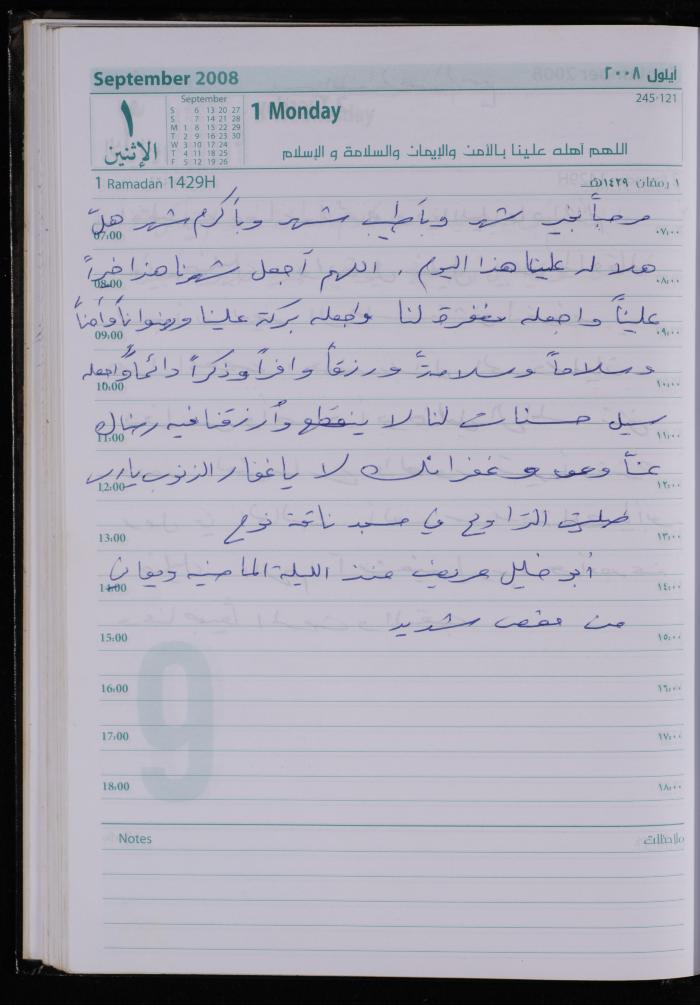 September 2008
أيلول ٢٠٠٨
245-121
١
الإثنين
September
S 6 13 20 27
S 7 14 21 28
M 1 8 15 22 29
T 2 9 16 23 30
W 3 10 17 24
T 4 11 18 25
F 5 12 19 26
1 Monday
اللهم أهله علينا بالأمن والإيمان والسلامة و الإسلام
1 Ramadan 1429H
١ رمضان ١٤٢٩هـ
مرحباً بخير شهر وبأطيب شهر وبأكرم شهر هلّ
07:00 ٠٧:٠٠
هلاله علينا هذا اليوم . اللهم أجعل شهرنا هذا خيراً
08:00 ٠٨:٠٠
علينا واجعله مغفرة لنا واجعله بركة علينا ورضواناً وأمناً
09:00 ٠٩:٠٠
وسلاماً وسلامةً ورزقاً وافراً وذكراً دائماً واجعله
10:00 ١٠:٠٠
سيل حسنات لنا لا ينقطع وأرزقنا فيه رضاك
11:00 ١١:٠٠
عنّا وعفو وغفرانك لا يا غفار الذنوب يارب
12:00 ١٢:٠٠
صليت التراويح في مسجد ناقة نوح
13:00 ١٣:٠٠
أبو خليل مريض منذ الليلة الماضية ويعاني
14:00 ١٤:٠٠
من مغص شديد
15:00 ١٥:٠٠
16:00 ١٦:٠٠
17:00 ١٧:٠٠
18:00 ١٨:٠٠
9
Notes ملاحظات